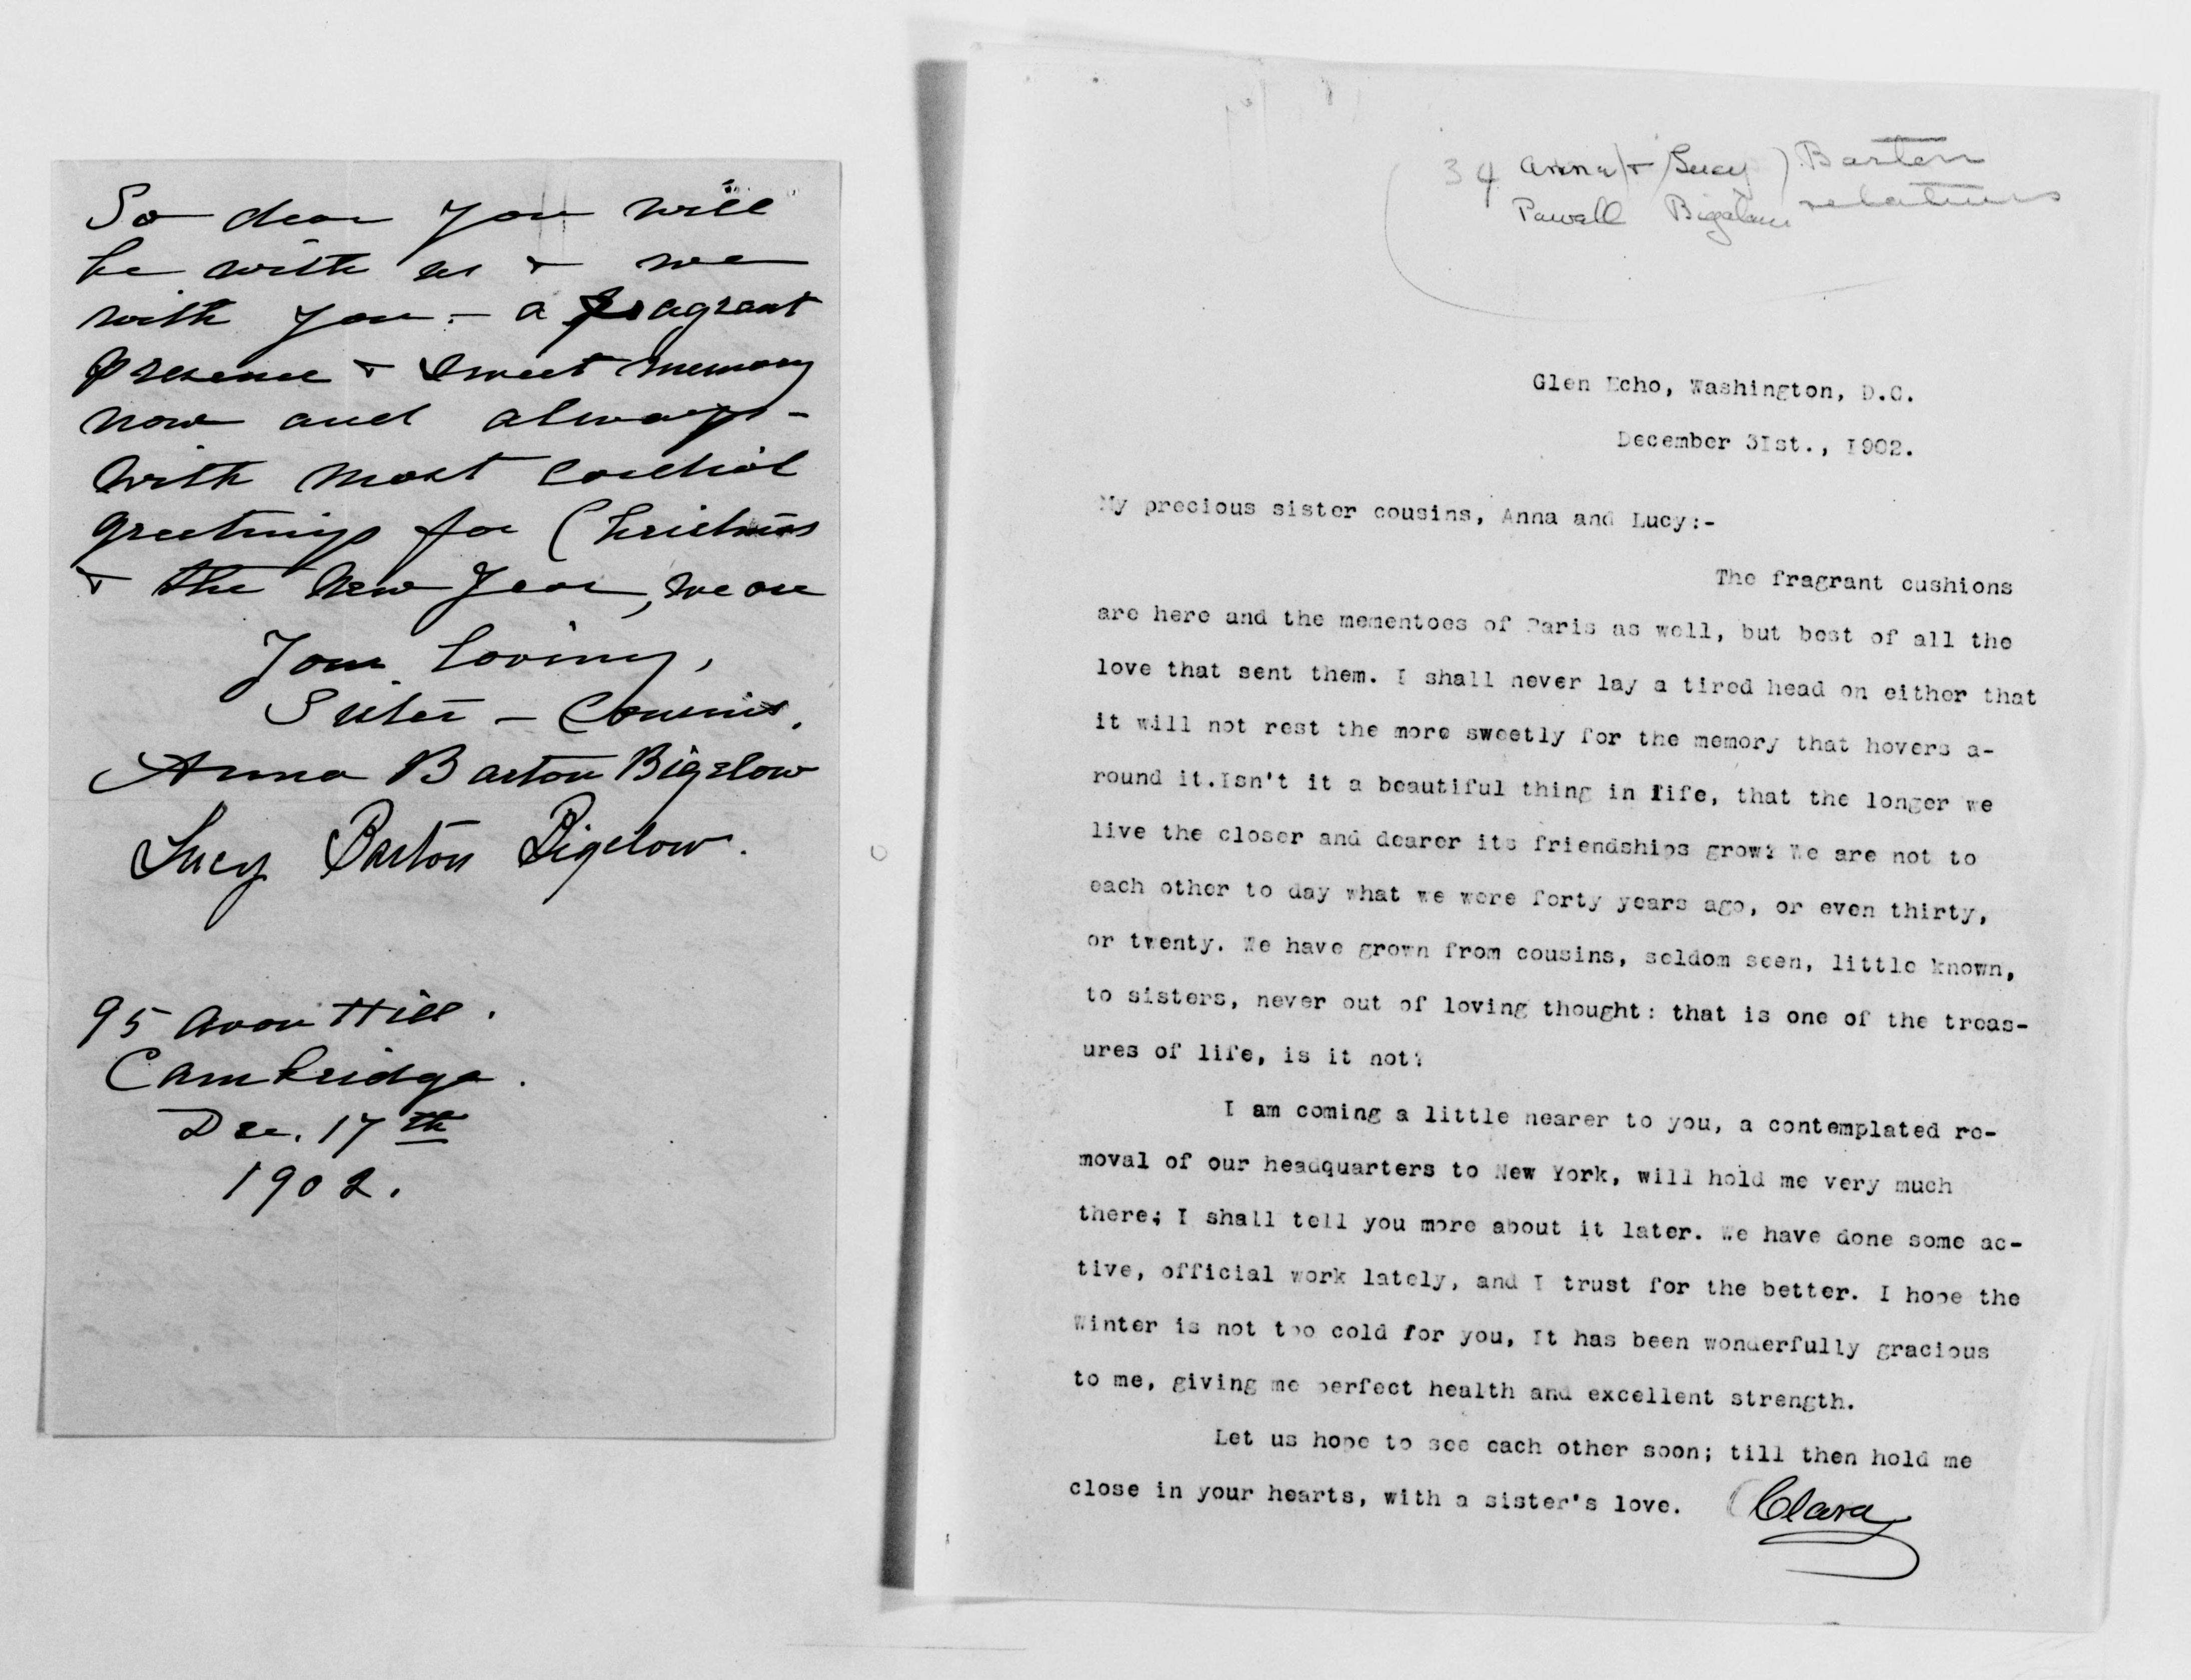 So dear you will
be with us & we
with you - a fragrant
presence & sweet memory
now and always -
With most cordial
greetings for Christmas
& the New Year, we are
Your loving,
Sister - Cousins.
Anna Barton Bigelow
Lucy Barton Bigelow.
95 Avon Hill.
Cambridge.
Dec. 17th
1902.
34 Anna & Lucy ) Barton
Powell Bigelow relatives
Glen Echo, Washington, D.C.
December 31st., 1902.
My precious sister cousins, Anna and Lucy:-
The fragrant cushions
are here and the mementoes of Paris as well, but best of all the
love that sent them. I shall never lay a tired head on either that
it will not rest the more sweetly for the memory that hovers a-
round it.Isn't it a beautiful thing in life, that the longer we
live the closer and dearer its friendships grow? We are not to
each other to day what we were forty years ago, or even thirty,
or twenty. We have grown from cousins, seldom seen, little known,
to sisters, never out of loving thought: that is one of the treas-
ures of life, is it not?
I am coming a little nearer to you, a contemplated re-
moval of our headquarters to New York, will hold me very much
there; I shall tell you more about it later. We have done some ac-
tive, official work lately, and I trust for the better. I hope the
Winter is not too cold for you, It has been wonderfully gracious
to me, giving me perfect health and excellent strength.
Let us hope to see each other soon; till then hold me
close in your hearts, with a sister's love. Clara